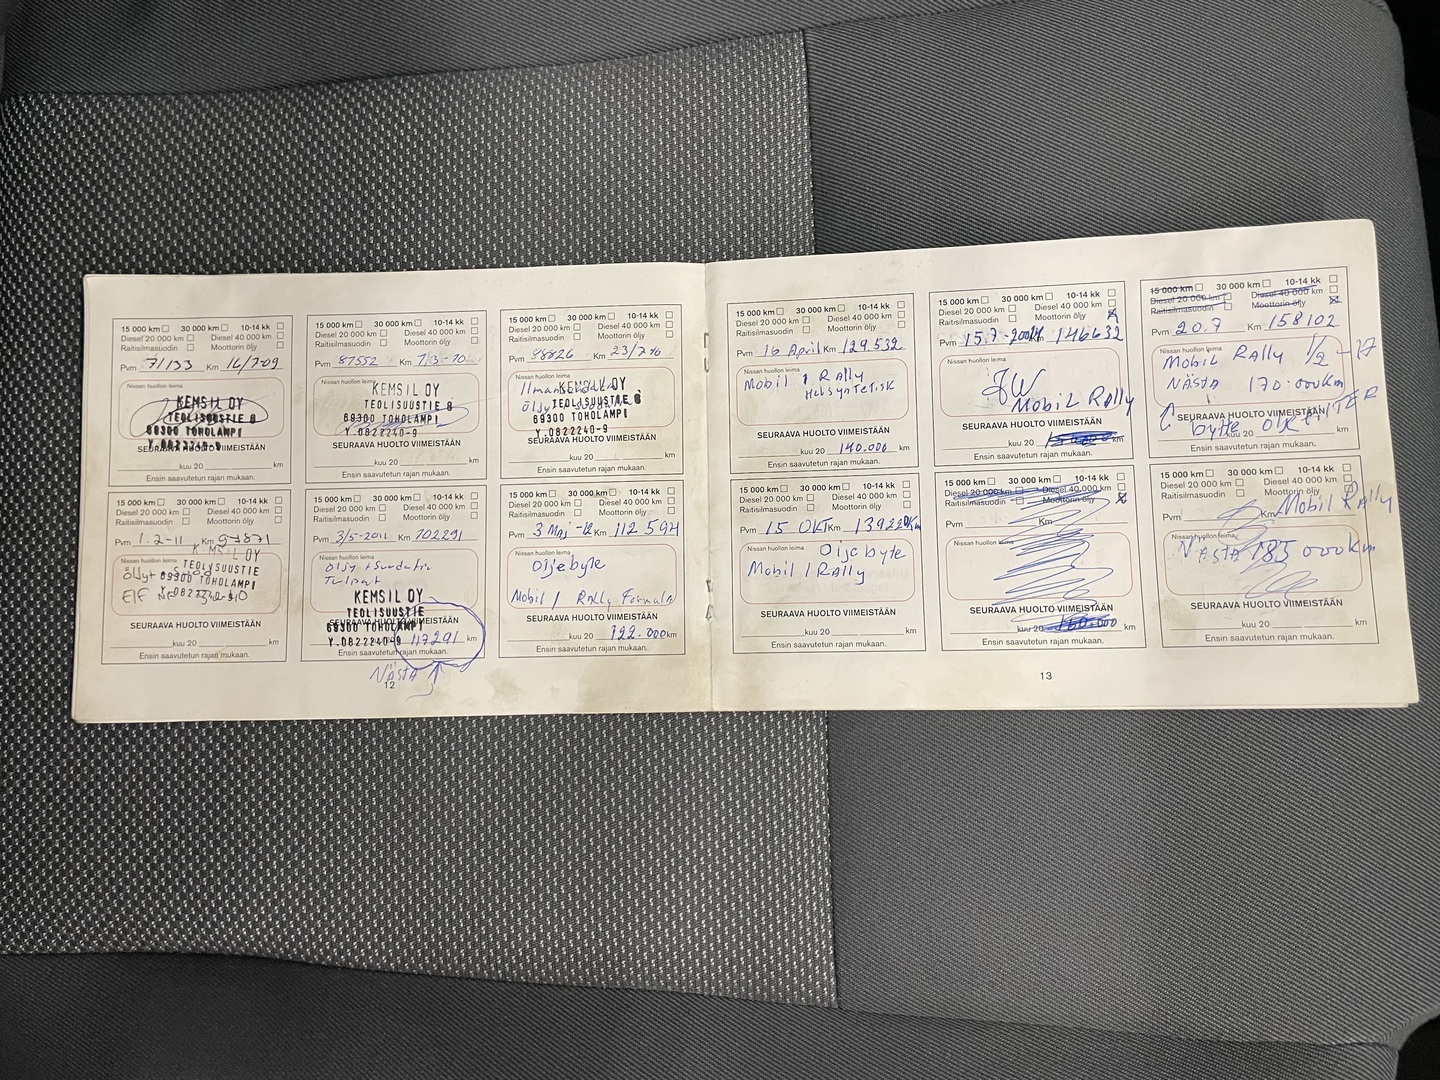 15 000 km 30 000 km 10-14 kk
Diesel 20 000 km Diesel 40 000 km
Raitisilmasuodin Moottorin öljy
Pvm 71133 Km 16/709
Nissan huollon leima
KEMSIL OY
TEOLISUUSTIE 8
69300 TOHOLAMPI
Y.0822240-9
SEURAAVA HUOLTO VIIMEISTÄÄN
kuu 20 km
Ensin saavutetun rajan mukaan.
15 000 km 30 000 km 10-14 kk
Diesel 20 000 km Diesel 40 000 km
Raitisilmasuodin Moottorin öljy
Pvm 81552 Km 1/3-10
Nissan huollon leima
KEMSIL OY
TEOLISUUSTIE 8
69300 TOHOLAMPI
Y.0822240-9
SEURAAVA HUOLTO VIIMEISTÄÄN
kuu 20 km
Ensin saavutetun rajan mukaan.
15 000 km 30 000 km 10-14 kk
Diesel 20 000 km Diesel 40 000 km
Raitisilmasuodin Moottorin öljy
Pvm 88826 Km
Nissan huollon leima
KEMSIL OY
TEOLISUUSTIE 8
69300 TOHOLAMPI
Y.0822240-9
SEURAAVA HUOLTO VIIMEISTÄÄN
kuu 20 km
Ensin saavutetun rajan mukaan.
15 000 km 30 000 km 10-14 kk
Diesel 20 000 km Diesel 40 000 km
Raitisilmasuodin Moottorin öljy
Pvm 1.2-11 Km 97871
Nissan huollon leima
KEMSIL OY
TEOLISUUSTIE
69300 TOHOLAMPI
Y.0822240-9
SEURAAVA HUOLTO VIIMEISTÄÄN
kuu 20 km
Ensin saavutetun rajan mukaan.
15 000 km 30 000 km 10-14 kk
Diesel 20 000 km Diesel 40 000 km
Raitisilmasuodin Moottorin öljy
Pvm 3/5-2011 Km 102291
Nissan huollon leima
Öljy + Suodatin
KEMSIL OY
TEOLISUUSTIE
69300 TOHOLAMPI
Y.0822240-9
SEURAAVA HUOLTO VIIMEISTÄÄN
117291 km
Ensin saavutetun rajan mukaan.
NÄSTA
12
15 000 km 30 000 km 10-14 kk
Diesel 20 000 km Diesel 40 000 km
Raitisilmasuodin Moottorin öljy
Pvm 3 Maj -12 Km 112 594
Nissan huollon leima
Oljebyte
Mobil 1 Rally Formula
SEURAAVA HUOLTO VIIMEISTÄÄN
kuu 20 122.000 km
Ensin saavutetun rajan mukaan.
15 000 km 30 000 km 10-14 kk
Diesel 20 000 km Diesel 40 000 km
Raitisilmasuodin Moottorin öljy
Pvm 16 April Km 129.532
Nissan huollon leima
Mobil 1 Rally
Helsyntetisk
SEURAAVA HUOLTO VIIMEISTÄÄN
kuu 20 140.000 km
Ensin saavutetun rajan mukaan.
15 000 km 30 000 km 10-14 kk
Diesel 20 000 km Diesel 40 000 km
Raitisilmasuodin Moottorin öljy
Pvm 15.7 Km 146632
Nissan huollon leima
JW
Mobil Rally
SEURAAVA HUOLTO VIIMEISTÄÄN
kuu 20 km
Ensin saavutetun rajan mukaan.
15 000 km 30 000 km 10-14 kk
Diesel 20 000 km Diesel 40 000 km
Raitisilmasuodin Moottorin öljy
Pvm 20.7 Km 158102
Nissan huollon leima
Mobil Rally 1/2 -17
NÄSTA 170.000 km
SEURAAVA HUOLTO VIIMEISTÄÄN
bytte
kuu 20 km
Ensin saavutetun rajan mukaan.
15 000 km 30 000 km 10-14 kk
Diesel 20 000 km Diesel 40 000 km
Raitisilmasuodin Moottorin öljy
Pvm 15 OKT Km
Nissan huollon leima
Oljebyte
Mobil 1 Rally
SEURAAVA HUOLTO VIIMEISTÄÄN
kuu 20 km
Ensin saavutetun rajan mukaan.
15 000 km 30 000 km 10-14 kk
Diesel 20 000 km Diesel 40 000 km
Raitisilmasuodin Moottorin öljy
Pvm Km
Nissan huollon leima
SEURAAVA HUOLTO VIIMEISTÄÄN
kuu 20 160.000 km
Ensin saavutetun rajan mukaan.
13
15 000 km 30 000 km 10-14 kk
Diesel 20 000 km Diesel 40 000 km
Raitisilmasuodin Moottorin öljy
Pvm Km Mobil Rally
Nissan huollon leima
NÄSTA 185 000 km
SEURAAVA HUOLTO VIIMEISTÄÄN
kuu 20 km
Ensin saavutetun rajan mukaan.